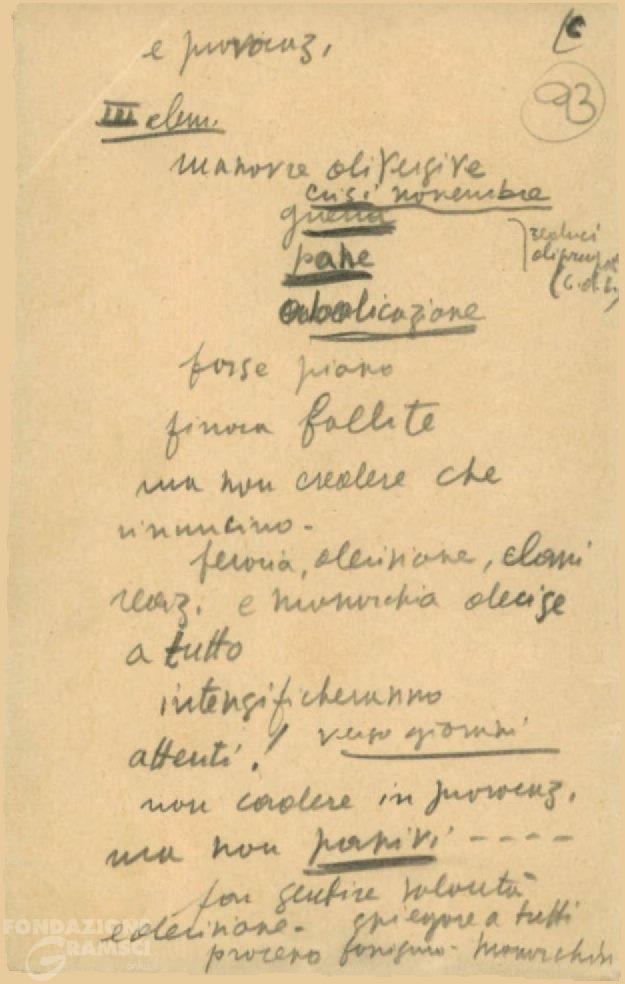 e provocaz.
93
III elem.
manovre diversive
crisi novembre
guerra
pane
abdicazione
reduci
(C.d.L)
forse piano
finora fallite
ma non credere che
rinuncino -
ferocia, decisione, classi
reaz. e monarchia decise
a tutto
intensificheranno
attenti! verso giorni
non cadere in provocaz.
ma non passivi - - - -
far sentire volontà
e decisione - spiegare a tutti
processo fascismo - monarchia
FONDAZIONE
GRAMSCI
onlus